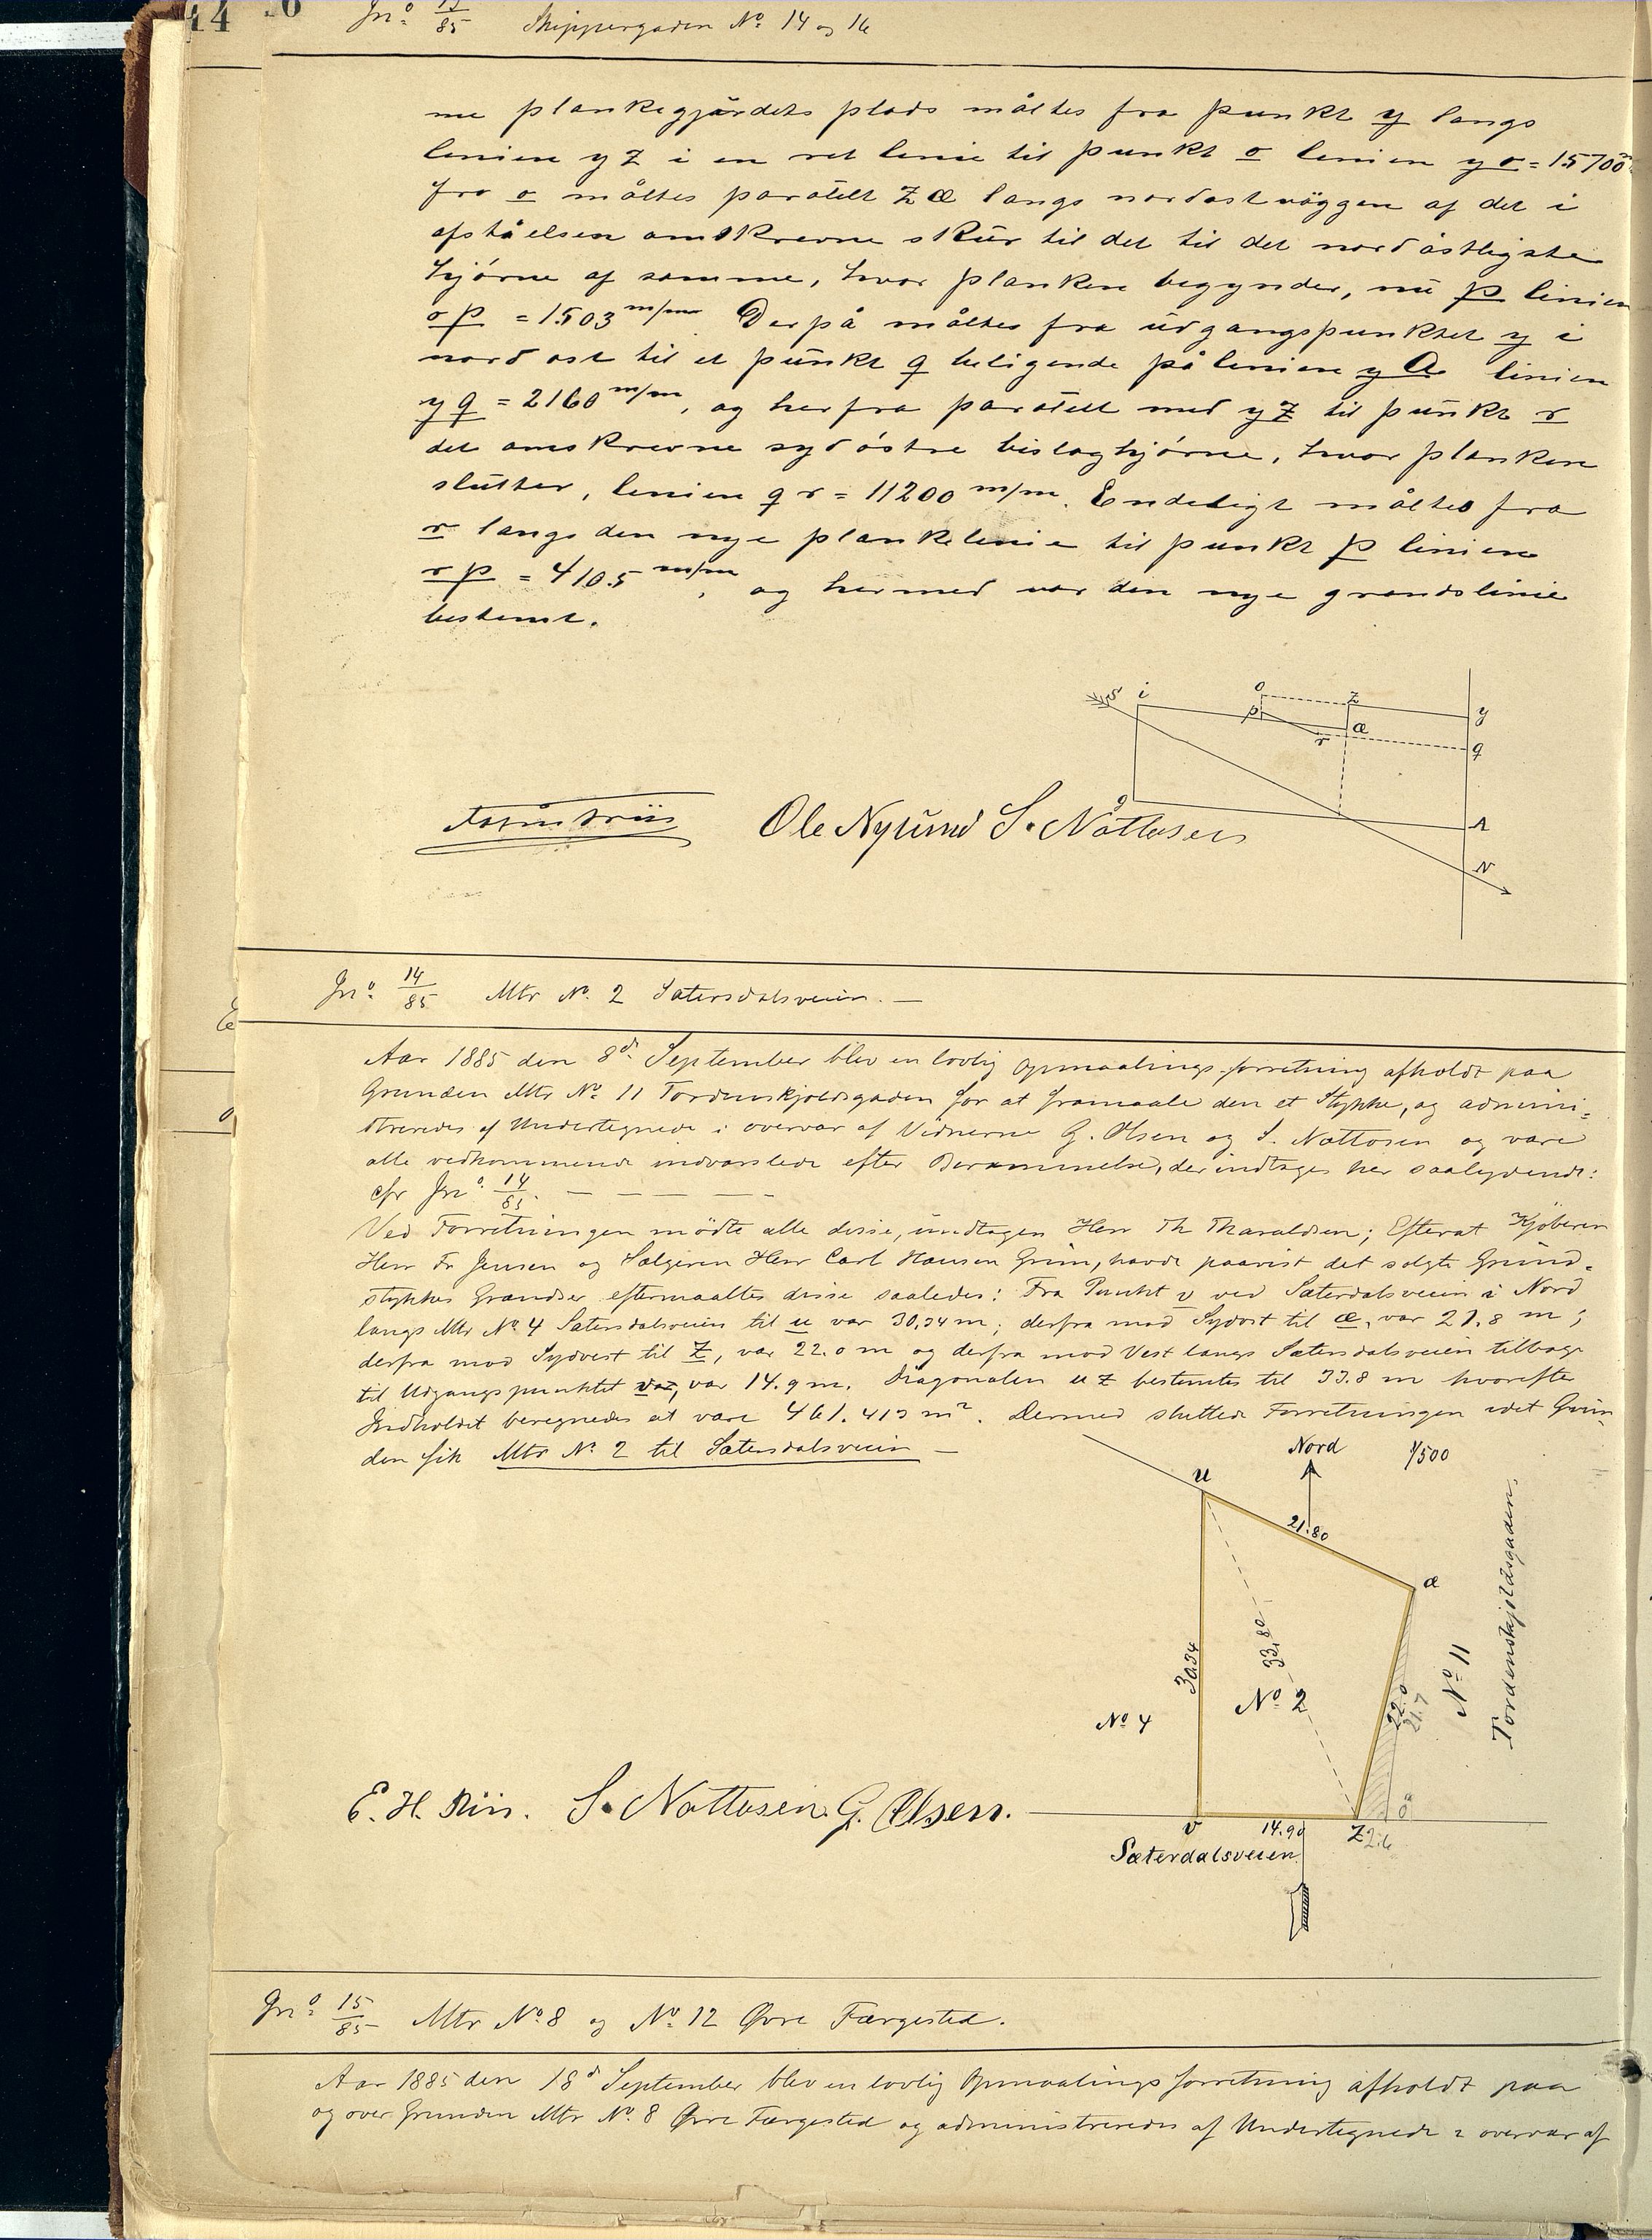 44
Jrn: 13/85 Skippergaden No 14 og 16
me plankegjärdets plads måltes fra punkt y langs
linien y z i en ret linie til punkt o linien y o = 15700
fra o måltes paralell z æ langs nordostväggen af det i
afståelsen omskrevne skur til det til det nordöstligste
hjörne af samme, hvor planken begynder, nu p linien
o p = 1503 m/m Derpå måltes fra udgangspunktet y i
nordost til et punkt q beligende på linien y A linien
y q = 2160 m/m, og herfra paralell med y z til punkt r
det omskrevne sydöstre bislaghjörne, hvor planken
slutter, linien q r = 11200 m/m. Endeligt måltes fra
r langs den nye plankelinie til punkt p linien
r p = 4105 m/m, og hermed var den nye grændslinie
bestemt.
S i o z y
p æ r q
A
N
Ole Nylund S. Nottosen
Jrn: 14/85 Mtr No. 2 Sætersdalsveien. —
Aar 1885 den 8d September blev en lovlig Opmaalings-forretning afholdt paa
Grunden Mtr No 11 Tordenskjoldsgaden for at framaale den et Stykke, og admini=
streredes af Undertegnede i overvær af Vidnerne G. Olsen og S. Nottosen og vare
alle vedkommende indvarslede efter Berammelse, der indtages her saalydende:
cfr Jrn: 14/85. — — — — —
Ved Forretningen mödte alle disse, undtagen Herr Th Tharaldsen; Efterat Kjöberen
Herr Fr Jensen og Sælgeren Herr Carl Hansen Grim, havde paavist det solgte Grund=
stykkes Grændser eftermaaltes disse saaledes: Fra Punkt v ved Sæterdalsveien i Nord
langs Mtr No 4 Sætersdalsveien til u var 30.34 m; derfra mod Sydost til æ, var 21.8 m;
derfra mod Sydvest til Z, var 22.0 m og derfra mod Vest langs Sætersdalsveien tilbage
til Udgangspunktet v, var 14.9 m. Diagonalen u z bestemtes til 33.8 m hvorefter
Indholdet beregnedes at være 461.413 m². Dermed sluttede Forretningen idet Grun-
den fik Mtr No. 2 til Sætersdalsveien —
Nord 1/500
u
21.80
æ
30.34
33.80
No 2
No 4
22.0
21.7
No 11
Tordenskjoldsgaden.
E. H. Riis. S. Nottosen. G. Olsen.
v 14.90 Z 2.6 ö
Sæterdalsveien
Jrn: 15/85 Mtr No 8 og No 12 Øvre Færgested.
Aar 1885 den 18d September blev en lovlig Opmaalingsforretning afholdt paa
og over Grunden Mtr No. 8 Øvre Færgested og administreredes af Undertegnede i overvær af